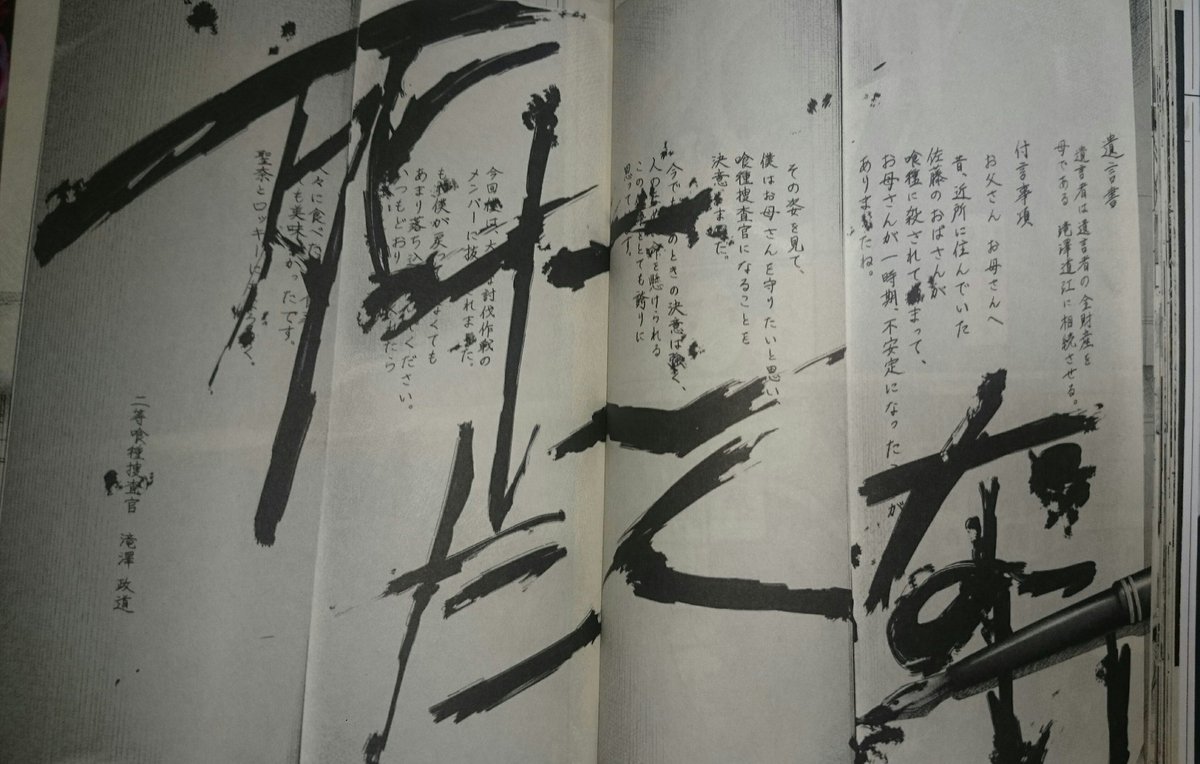 遺言書
遺言者は遺言者の全財産を
母である 滝澤道江に相続させる。
付言事項
お父さん お母さんへ
昔、近所に住んでいた
佐藤のおばさんが
喰種に殺されてしまって、
お母さんが一時期、不安定になった が
ありましたね。
その姿を見て、
僕はお母さんを守りたいと思い
喰種捜査官になることを
決意しました。
今でも のときの決意は強く、
人の 命を懸けられる
この をとても誇りに
思って す。
今回僕は、大 な討伐作戦の
メンバーに抜 れました。
もし僕が戻っ なくても
あまり落ち込 ください。
いつもどおり たら
久々に食べた
も美味 た です。
聖奈とロッキーに く、
二等喰種捜査官 滝澤 政道
死にたくない